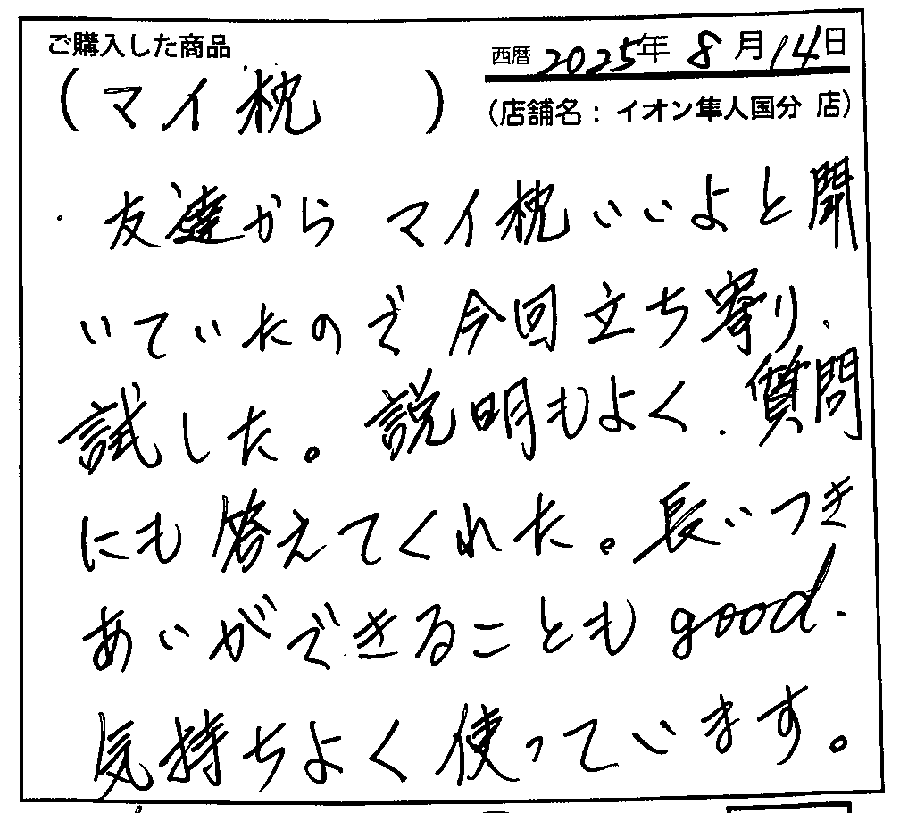 ご購入した商品
西暦 2025年 8月14日
(マイ枕)
(店舗名：イオン隼人国分 店)
友達から マイ枕いいよと聞
いていたので 今回立ち寄り、
試した。説明もよく、質問
にも答えてくれた。長いつき
あいができることも good.
気持ちよく使っています。